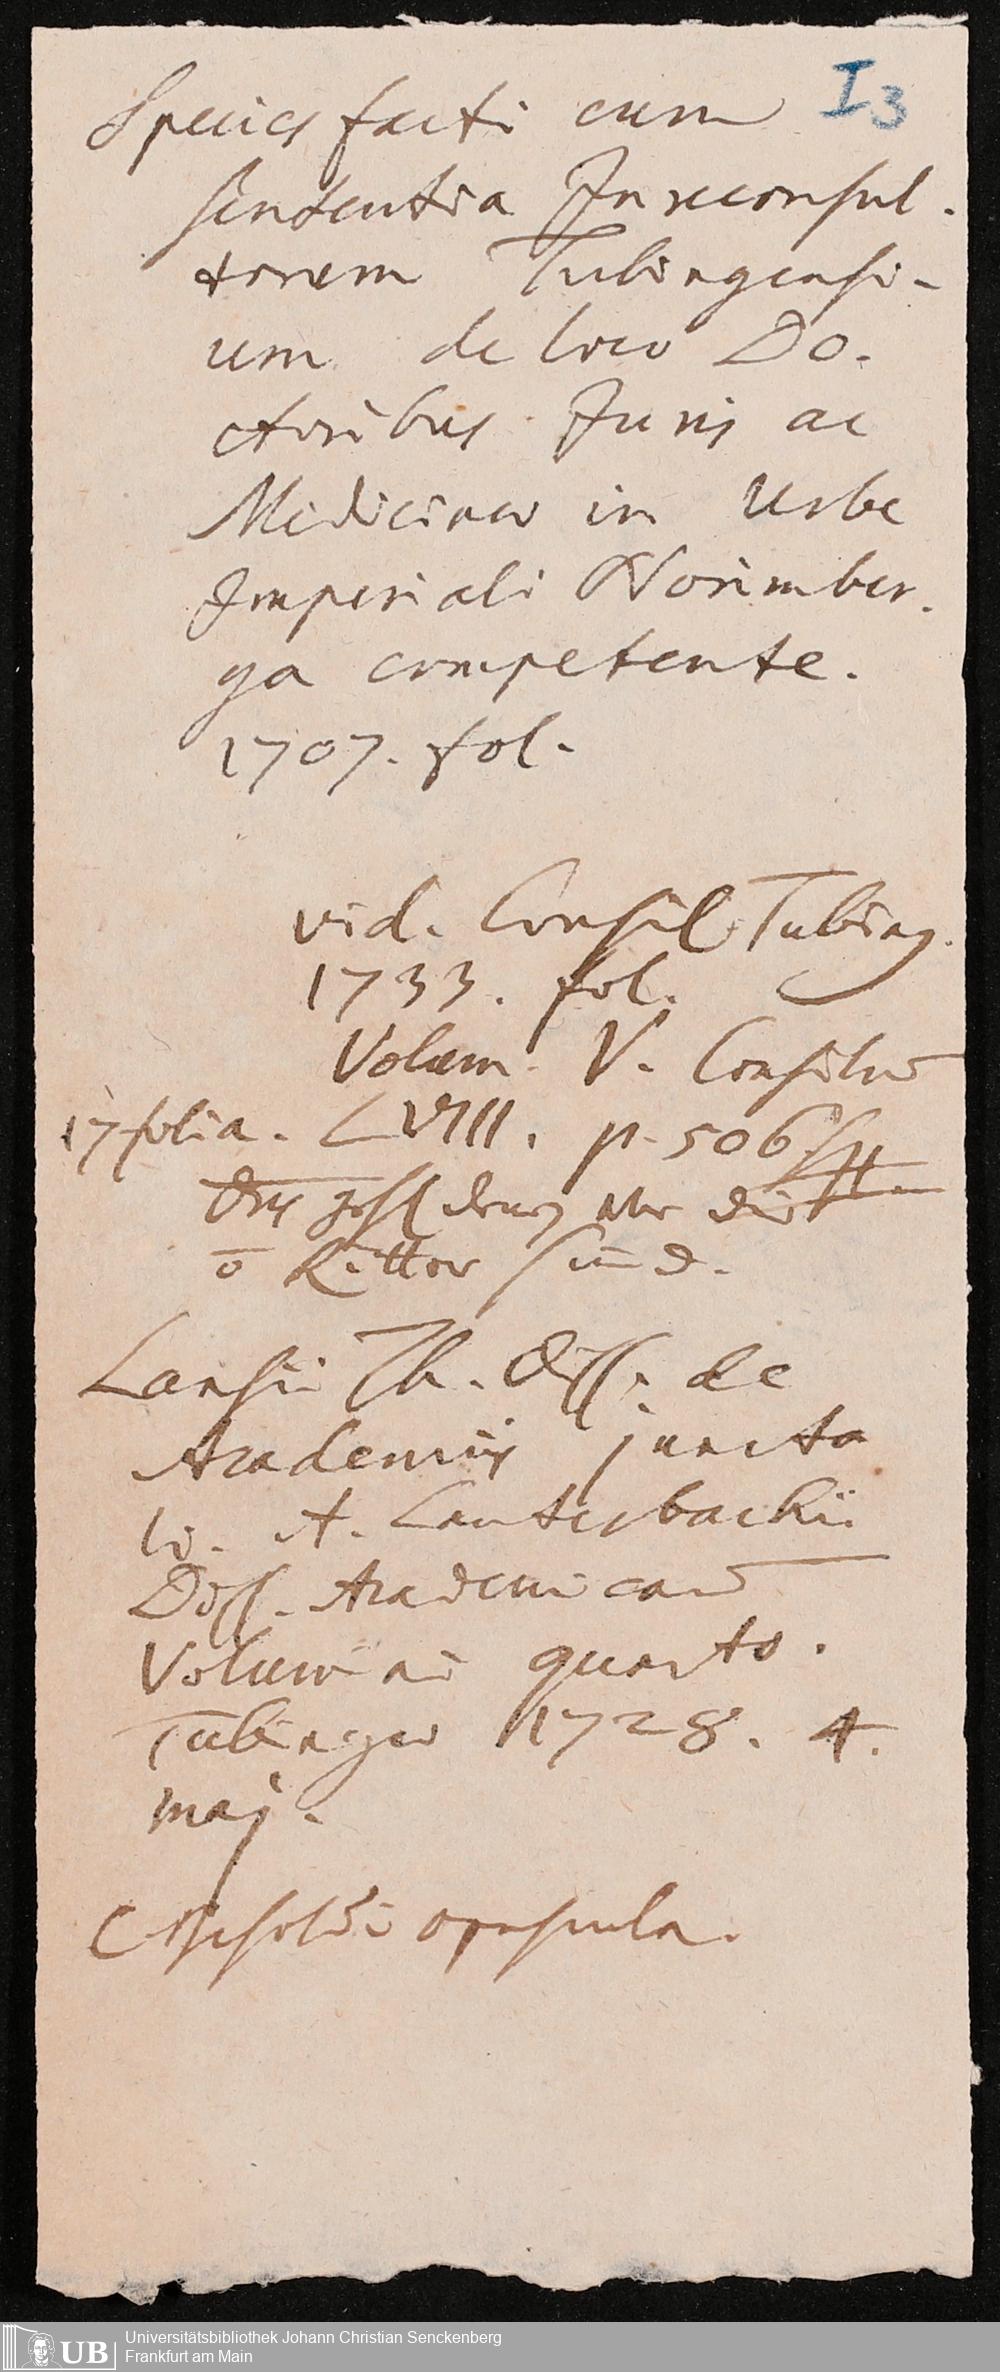 I3
Species facti cum
sententia Jureconsul-
torum Tubingensi-
um de loco Do-
ctoribus Juris ac
Medicinae in Urbe
Imperiali Norimber-
ga competente.
1707. fol.
vid. Consil. Tubing.
1733. fol.
Volum. V. Consilium
17 folia. LVIII. p. 506
die
o Ritter sind.
Lansii Th. Diss. de
Academiis juncta
W. A. Lauterbachii
Diss. Academicar
Volumini quarto.
Tubingae 1728. 4.
maj.
C Besoldi opuscula.
UB
Universitätsbibliothek Johann Christian Senckenberg
Frankfurt am Main